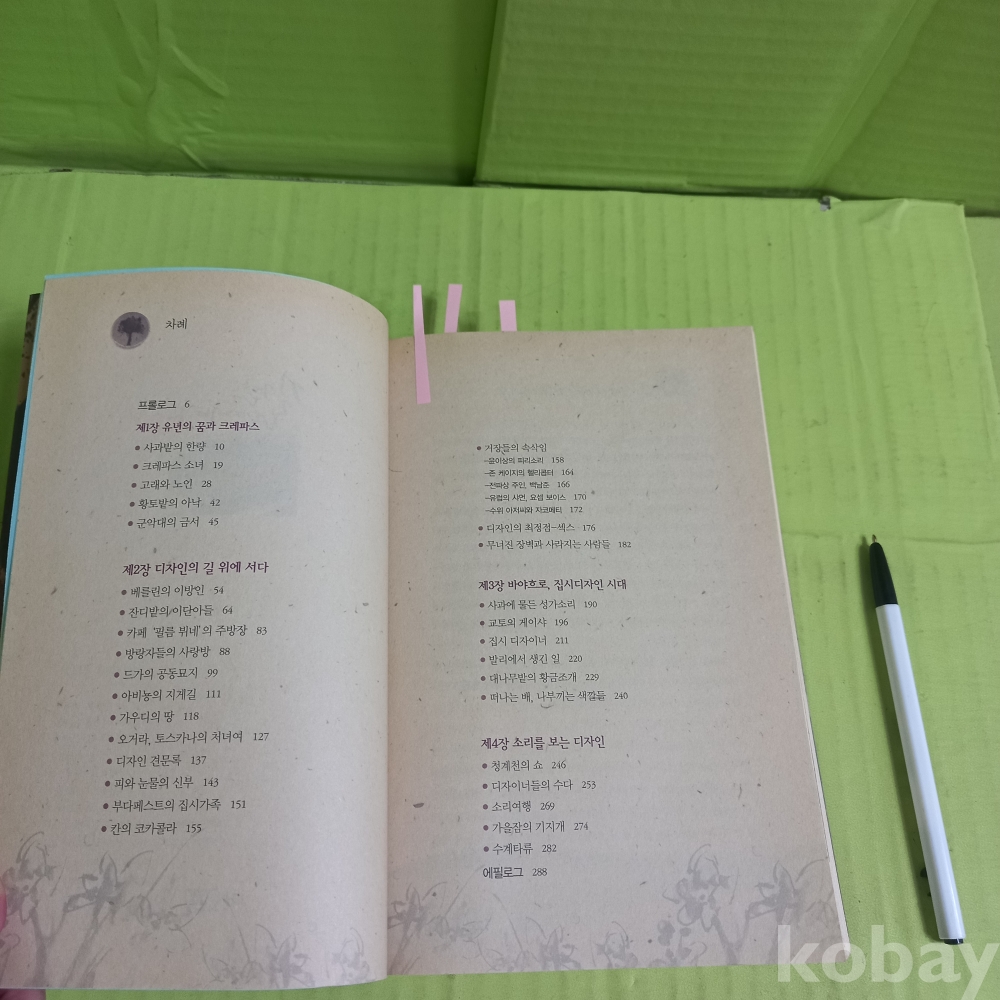 차례
프롤로그 6
제1장 유년의 꿈과 크레파스
● 사과밭의 한량 10
● 크레파스 소녀 19
● 고래와 노인 28
● 황토밭의 아낙 42
● 군악대의 금서 45
제2장 디자인의 길 위에 서다
● 베를린의 이방인 54
● 잔디밭의/이단아들 64
● 카페 '필름 뷔네'의 주방장 83
● 방랑자들의 사랑방 88
● 드가의 공동묘지 99
● 아비뇽의 지게길 111
● 가우디의 땅 118
● 오거라, 토스카나의 처녀여 127
● 디자인 견문록 137
● 피와 눈물의 신부 143
● 부다페스트의 집시가족 151
● 칸의 코카콜라 155
● 거장들의 속삭임
-윤이상의 파리소리 158
-존 케이지의 헬리콥터 164
-전파상 주인, 백남준 166
-유럽의 샤먼, 요셉 보이스 170
-수위 아저씨와 자코메티 172
● 디자인의 최정점-섹스 176
● 무너진 장벽과 사라지는 사람들 182
제3장 바야흐로, 집시디자인 시대
● 사과에 물든 성가소리 190
● 교토의 게이샤 196
● 집시 디자이너 211
● 발리에서 생긴 일 220
● 대나무밭의 황금조개 229
● 떠나는 배, 나부끼는 색깔들 240
제4장 소리를 보는 디자인
● 청계천의 쇼 246
● 디자이너들의 수다 253
● 소리여행 269
● 가을잠의 기지개 274
● 수계타류 282
에필로그 288
kobay